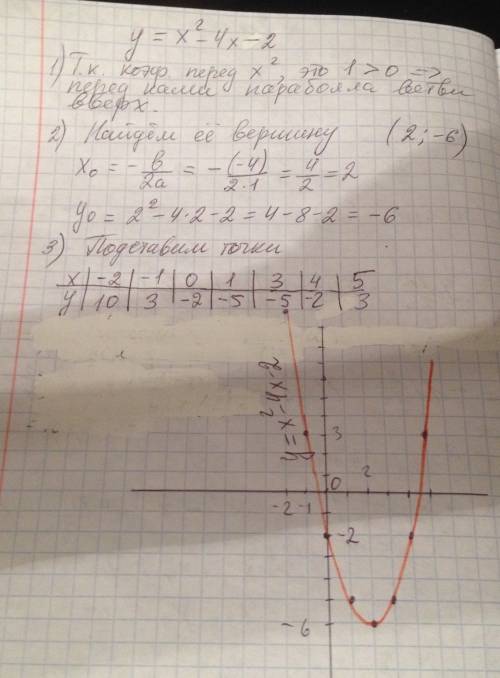 y = x² - 4x - 2
1) Т.к. коэф. перед x², это 1 > 0 =>
перед нами парабола ветви
вверх.
2) Найдём её вершину (2; -6)
x₀ = - b/2a = - (-4)/2·1 = 4/2 = 2
y₀ = 2² - 4·2 - 2 = 4 - 8 - 2 = -6
3) Подставим точки
x | -2 | -1 | 0 | 1 | 3 | 4 | 5
y | 10 | 3 | -2 | -5 | -5 | -2 | 3
y = x² - 4x - 2
3
0 2
-2 -1
-2
-6